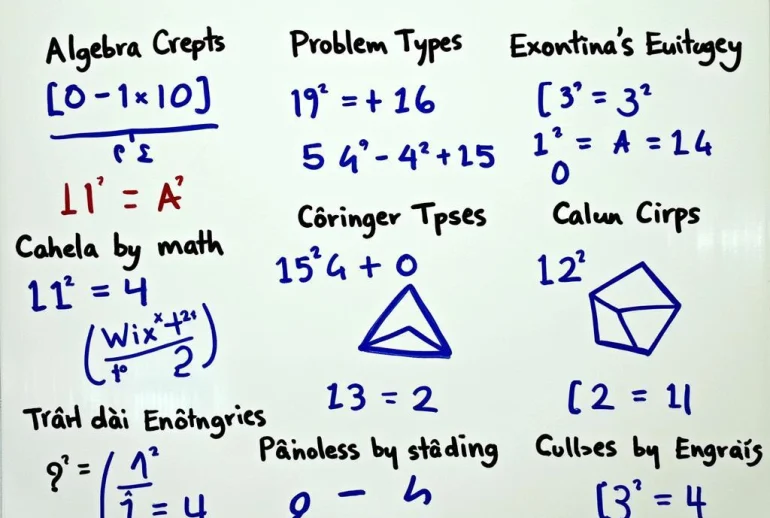 Algebra Crepts
[0 - 1 × 10]
11² = A²
Cahela by math
11² = 4
(Wix^x + 2¹
t° 2)
Trâʜ dài Enôtngries
?² = (1²
î = 4
Problem Types
19² = + 16
5 4⁹ - 4² + 15
Côringer Tpses
15²G + 0
13 = 2
Pâinoless by stâding
Exontina's Euitugey
[3' = 3²
1² = A = 14
0
Calun Cirps
12²
[2 = 11
Cullses by Engraís
[3² = 4